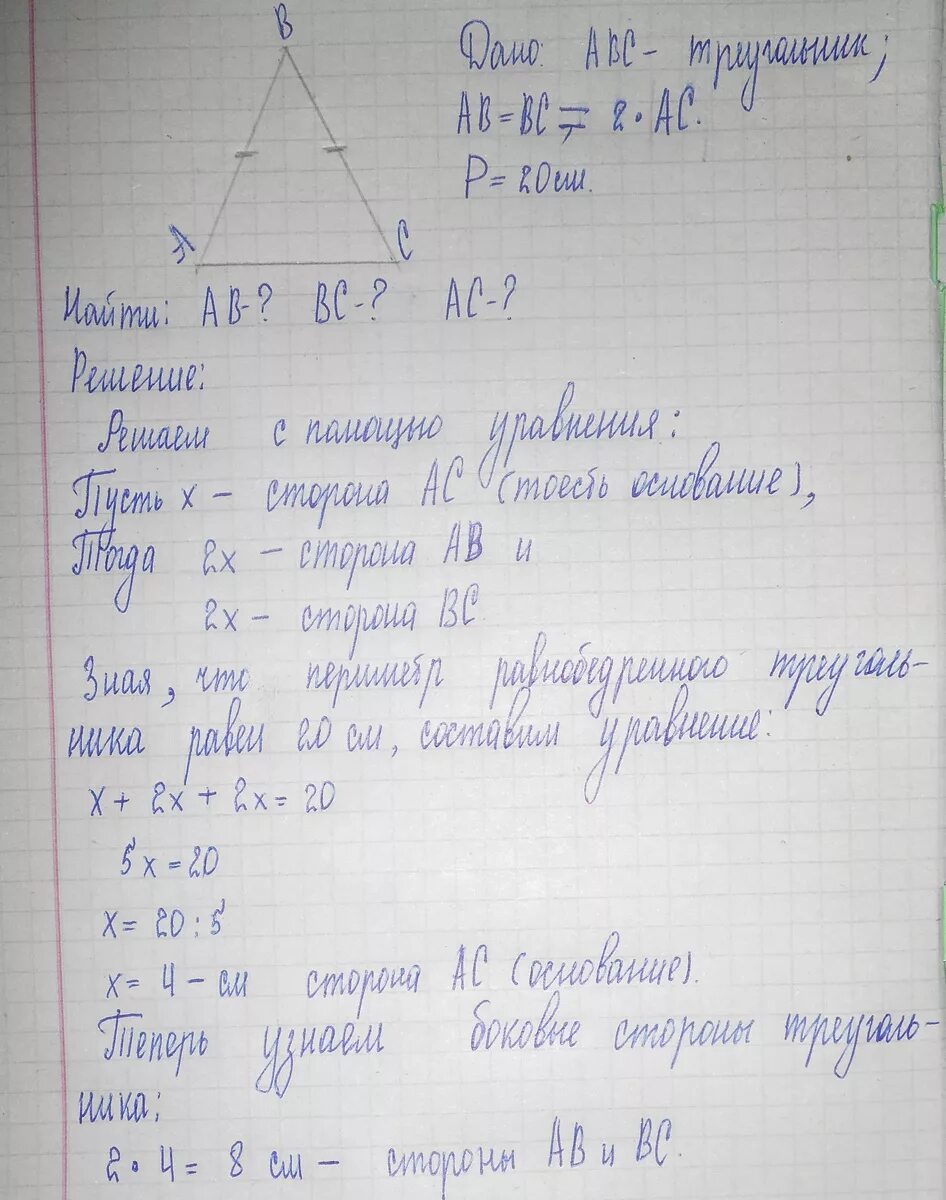 B
Дано: ABC - треугольник;
AB = BC = 2 · AC.
P = 20 см.
A
C
Найти: AB-? BC-? AC-?
Решение:
Решаем с помощью уравнения:
Пусть x - сторона AC (тоесть основание),
Тогда 2x - сторона AB и
2x - сторона BC
Зная, что периметр равнобедренного треуголь-
ника равен 20 см, составим уравнение:
x + 2x + 2x = 20
5x = 20
x = 20 : 5
x = 4 - см сторона AC (основание).
Теперь узнаем боковые стороны треуголь-
ника:
2 · 4 = 8 см - стороны AB и BC.